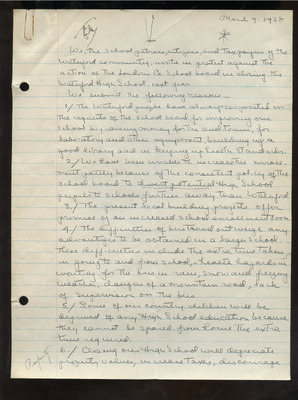 March 9, 1938
We, the School patrons, citizens, and Taxpayers of the
Waterford community, unite in protest against the
action of the Loudoun Co. School board in closing the
Waterford High School next year.
We submit the following reasons —
1./ The Waterford people have always cooperated in
the requests of the school board for improving our
school by raising money for this and towns, for
laboratory and other equipment, building up a
good library and in keeping up health standards.
2./ We have been unable to increase the enroll-
ment partly because of the consistent policy of the
school board to divert potential High School
pupils to schools further away than Waterford
3./ The present local building projects offer
promise of an increased school enrollment soon
4./ The difficulties of bus travel outweigh any
advantages to be obtained in a larger School
these difficulties include the extra time taken
in going to and from school, health hazards in
waiting for the bus in rain, snow and freezing
weather, dangers of a mountain road, lack
of supervision on the bus.
5./ Some of our country children will be
deprived of any High School education because
they cannot be spared from home the extra
time required.
6./ Closing our High School will depreciate
property values, increase taxes, discourage